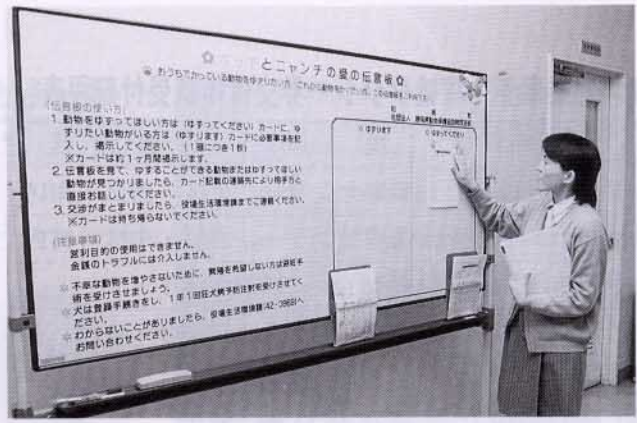 ✿ とニャンチの愛の伝言板 ✿
おうちでかっている動物をゆずりたい方、これから動物をかいたい方、この伝言板をご利用下さい
(伝言板の使い方)
1. 動物をゆずってほしい方は(ゆずってください)カードに、ゆ
ずりたい動物がいる方は(ゆずります)カードに必要事項を記
入し、掲示してください。(1頭につき1枚)
※カードは約1ヶ月間掲示します。
2. 伝言板を見て、ゆずることができる動物またはゆずってほしい
動物が見つかりましたら、カード記載の連絡先により相手方と
直接お話ししてください。
3. 交渉がまとまりましたら、役場生活環境課までご連絡ください。
※カードは持ち帰らないでください。
(注意事項)
営利目的の使用はできません。
金銭のトラブルには介入しません。
※不幸な動物を増やさないために、繁殖を希望しない方は避妊手
術を受けさせましょう。
※犬は登録手続きをし、1年1回狂犬病予防注射を受けさせてく
ださい。
※わからないことがありましたら、役場生活環境課(42-3968)へ
お問い合わせください。
社団法人
✿ ゆずります
✿ ゆずってください